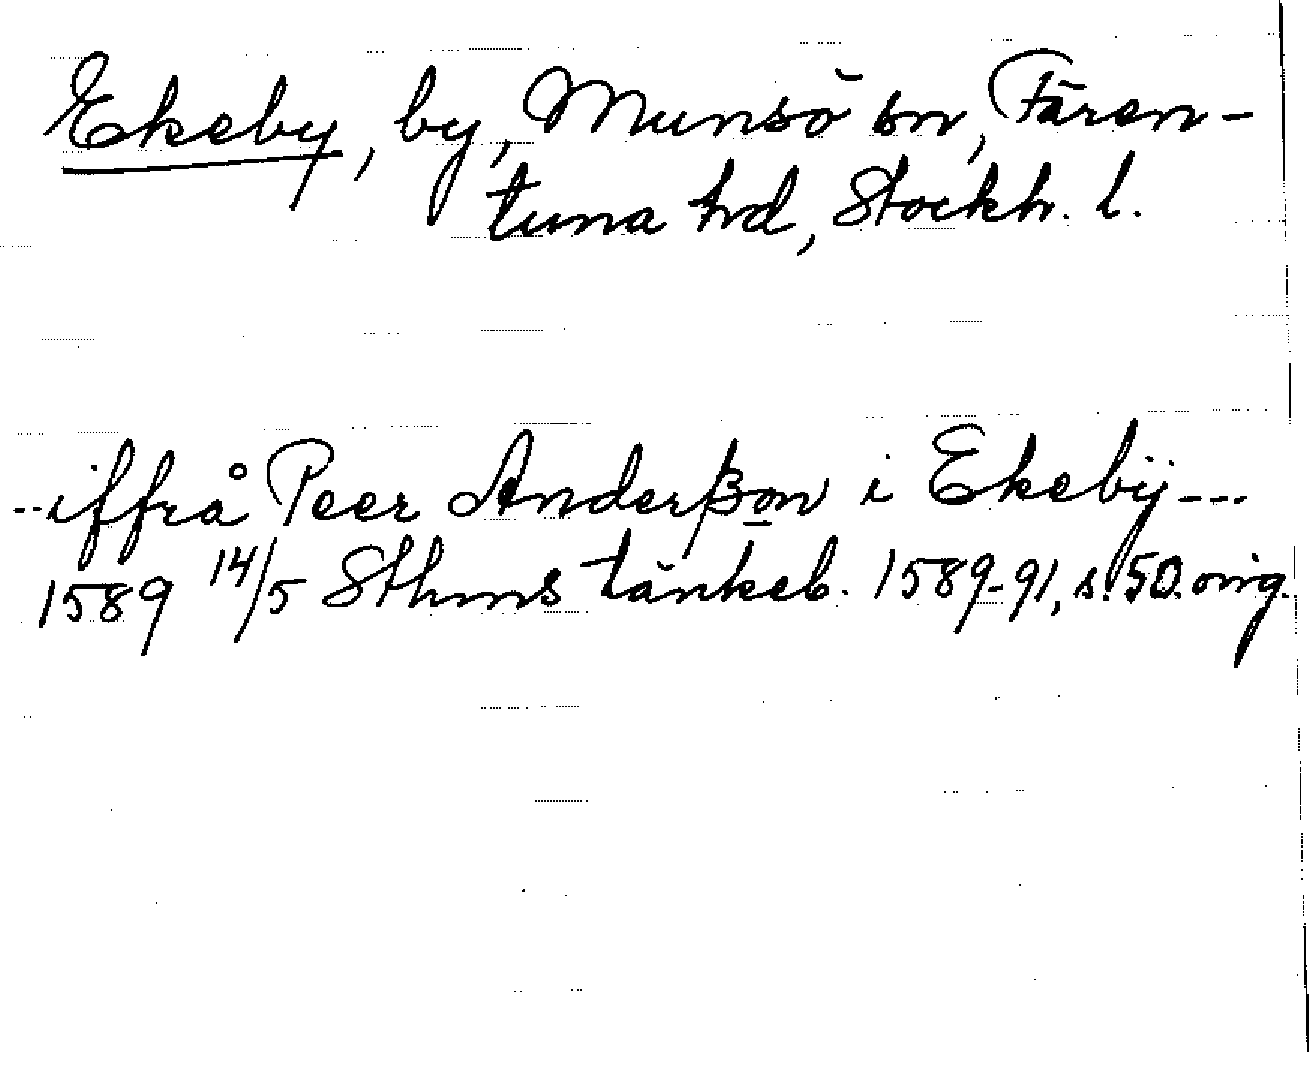 Ekeby, by, Munsö sn, Fären-
tuna hd, Stockh. l.
-- iffrå Peer Anderßon i Ekebÿ ---
1589 14/5 Sthms tänkeb. 1589-91, s. 50. orig.